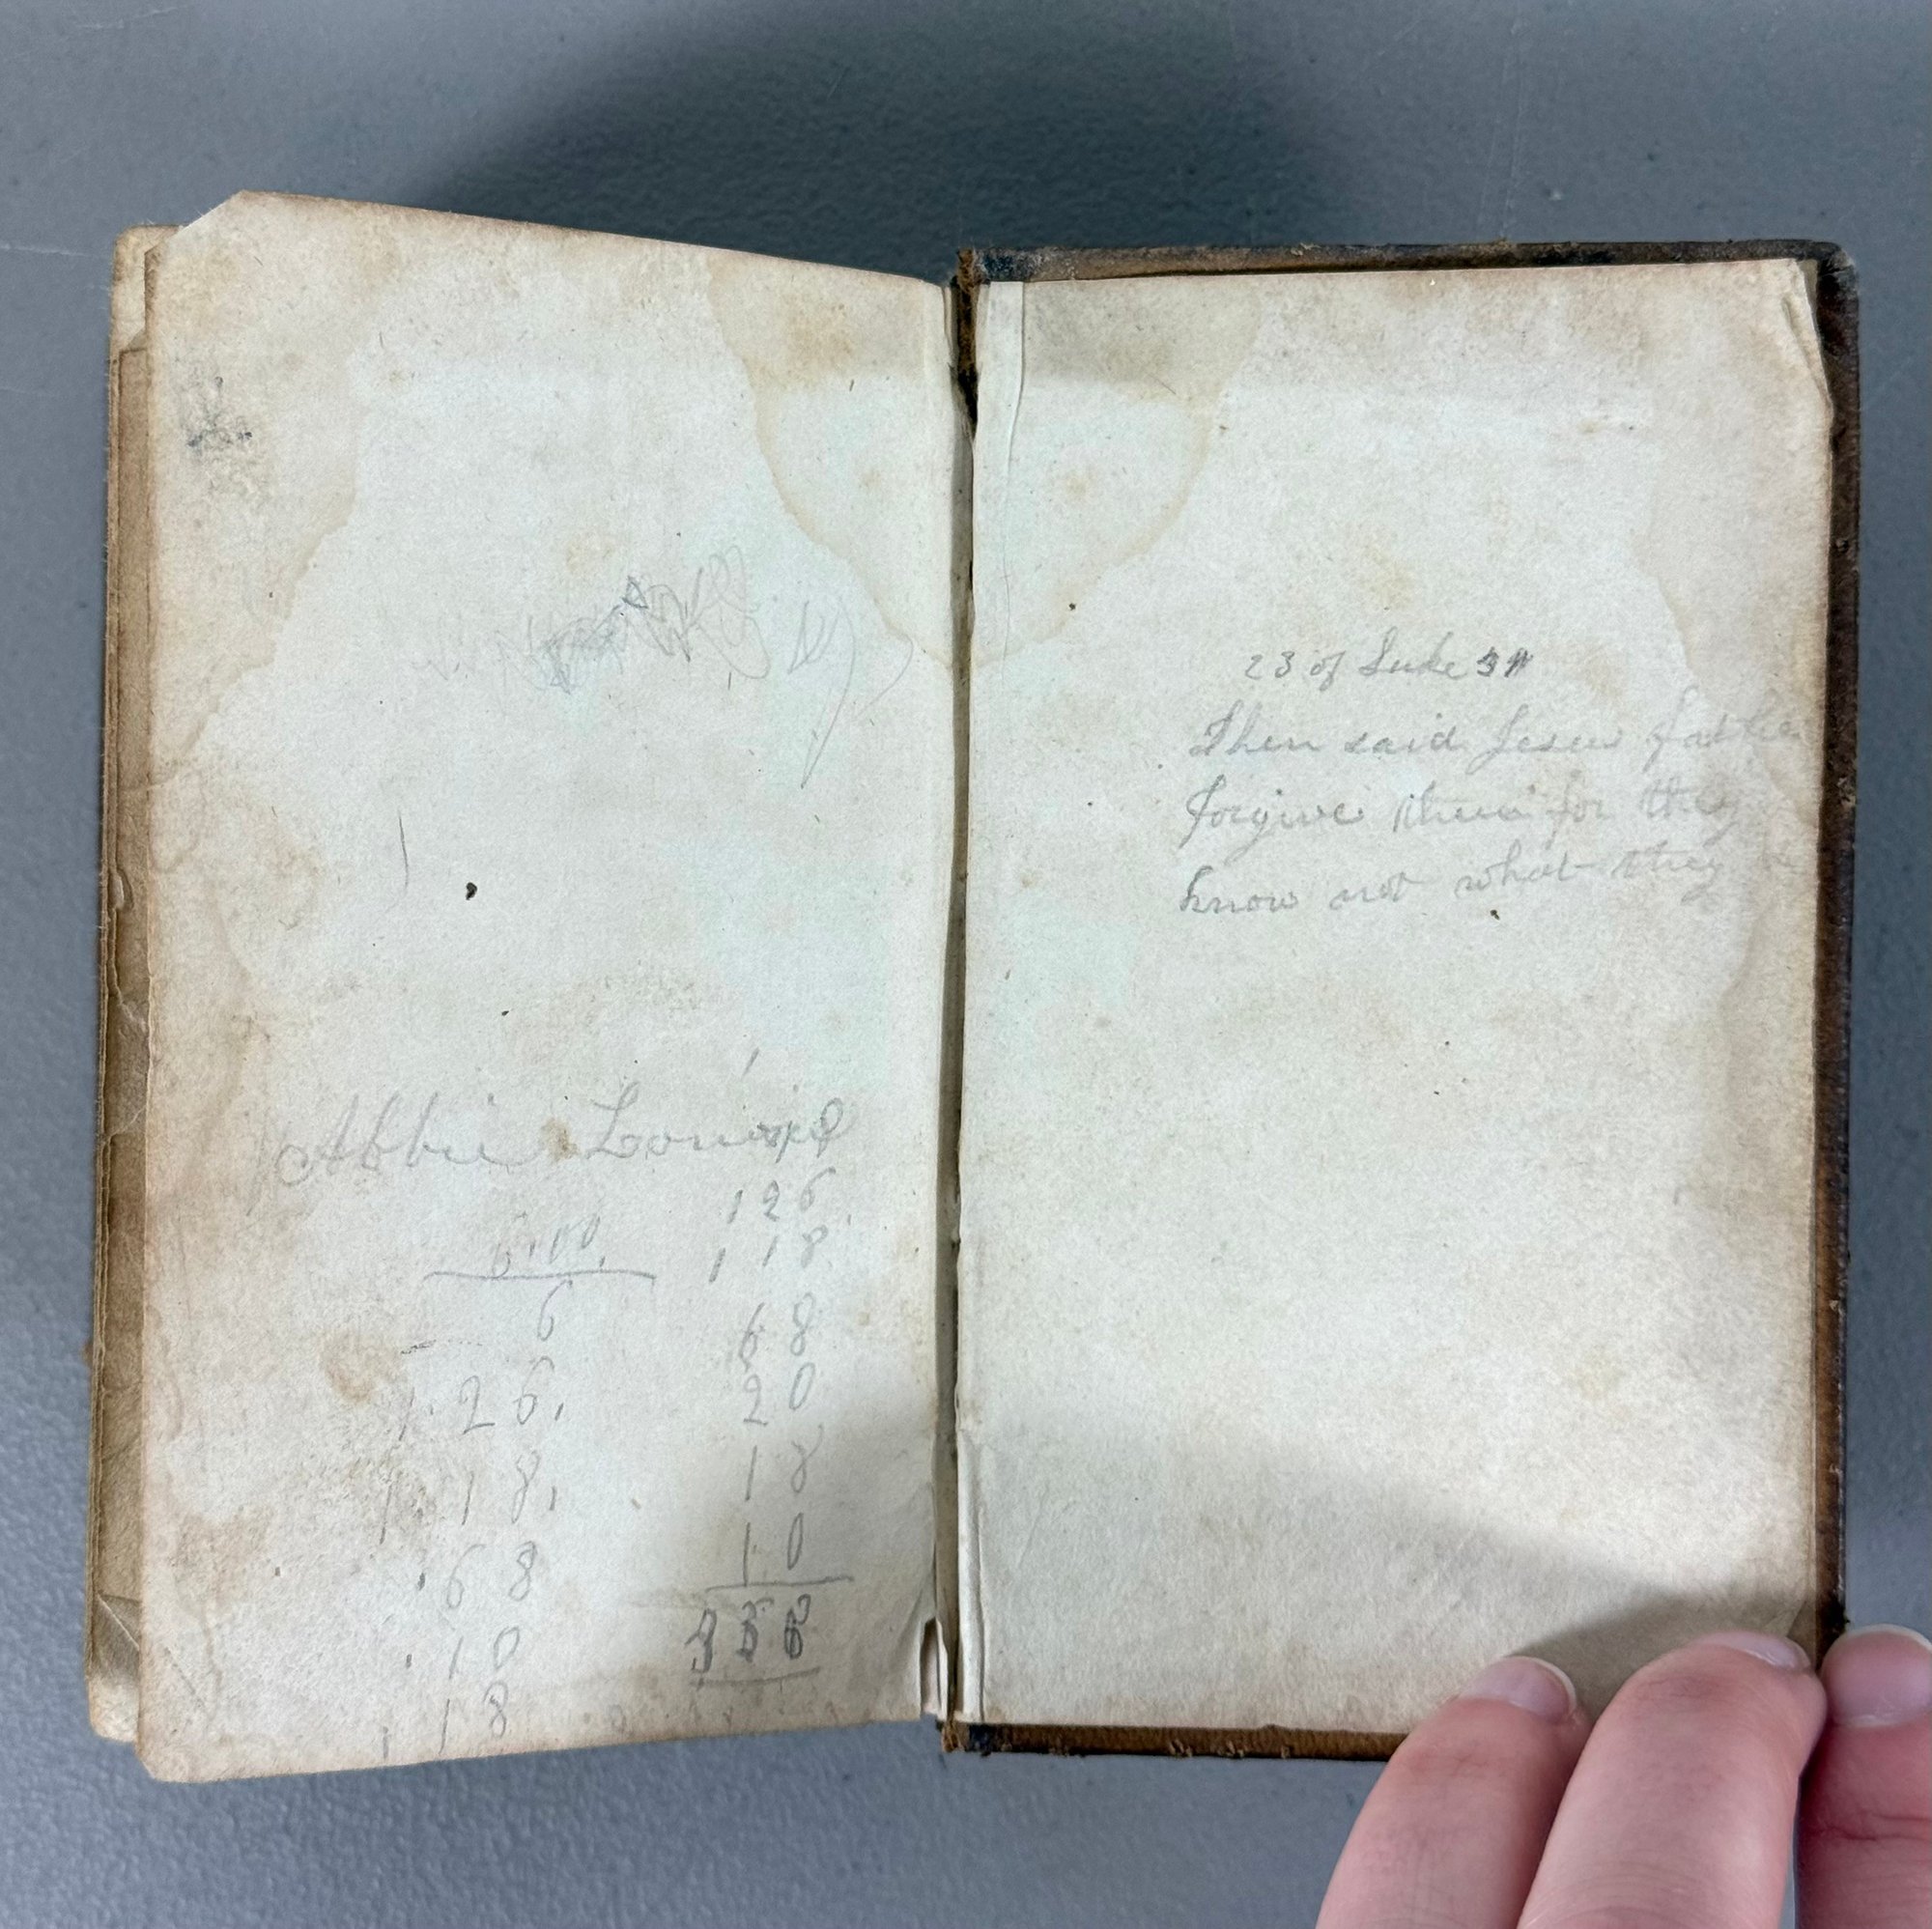 Abbie Louise
126
118
6.00
6
68
1.26
20
1.18
18
10
68
10
18
23 of Luke 34
Then said Jesus father
forgive them for they
know not what they